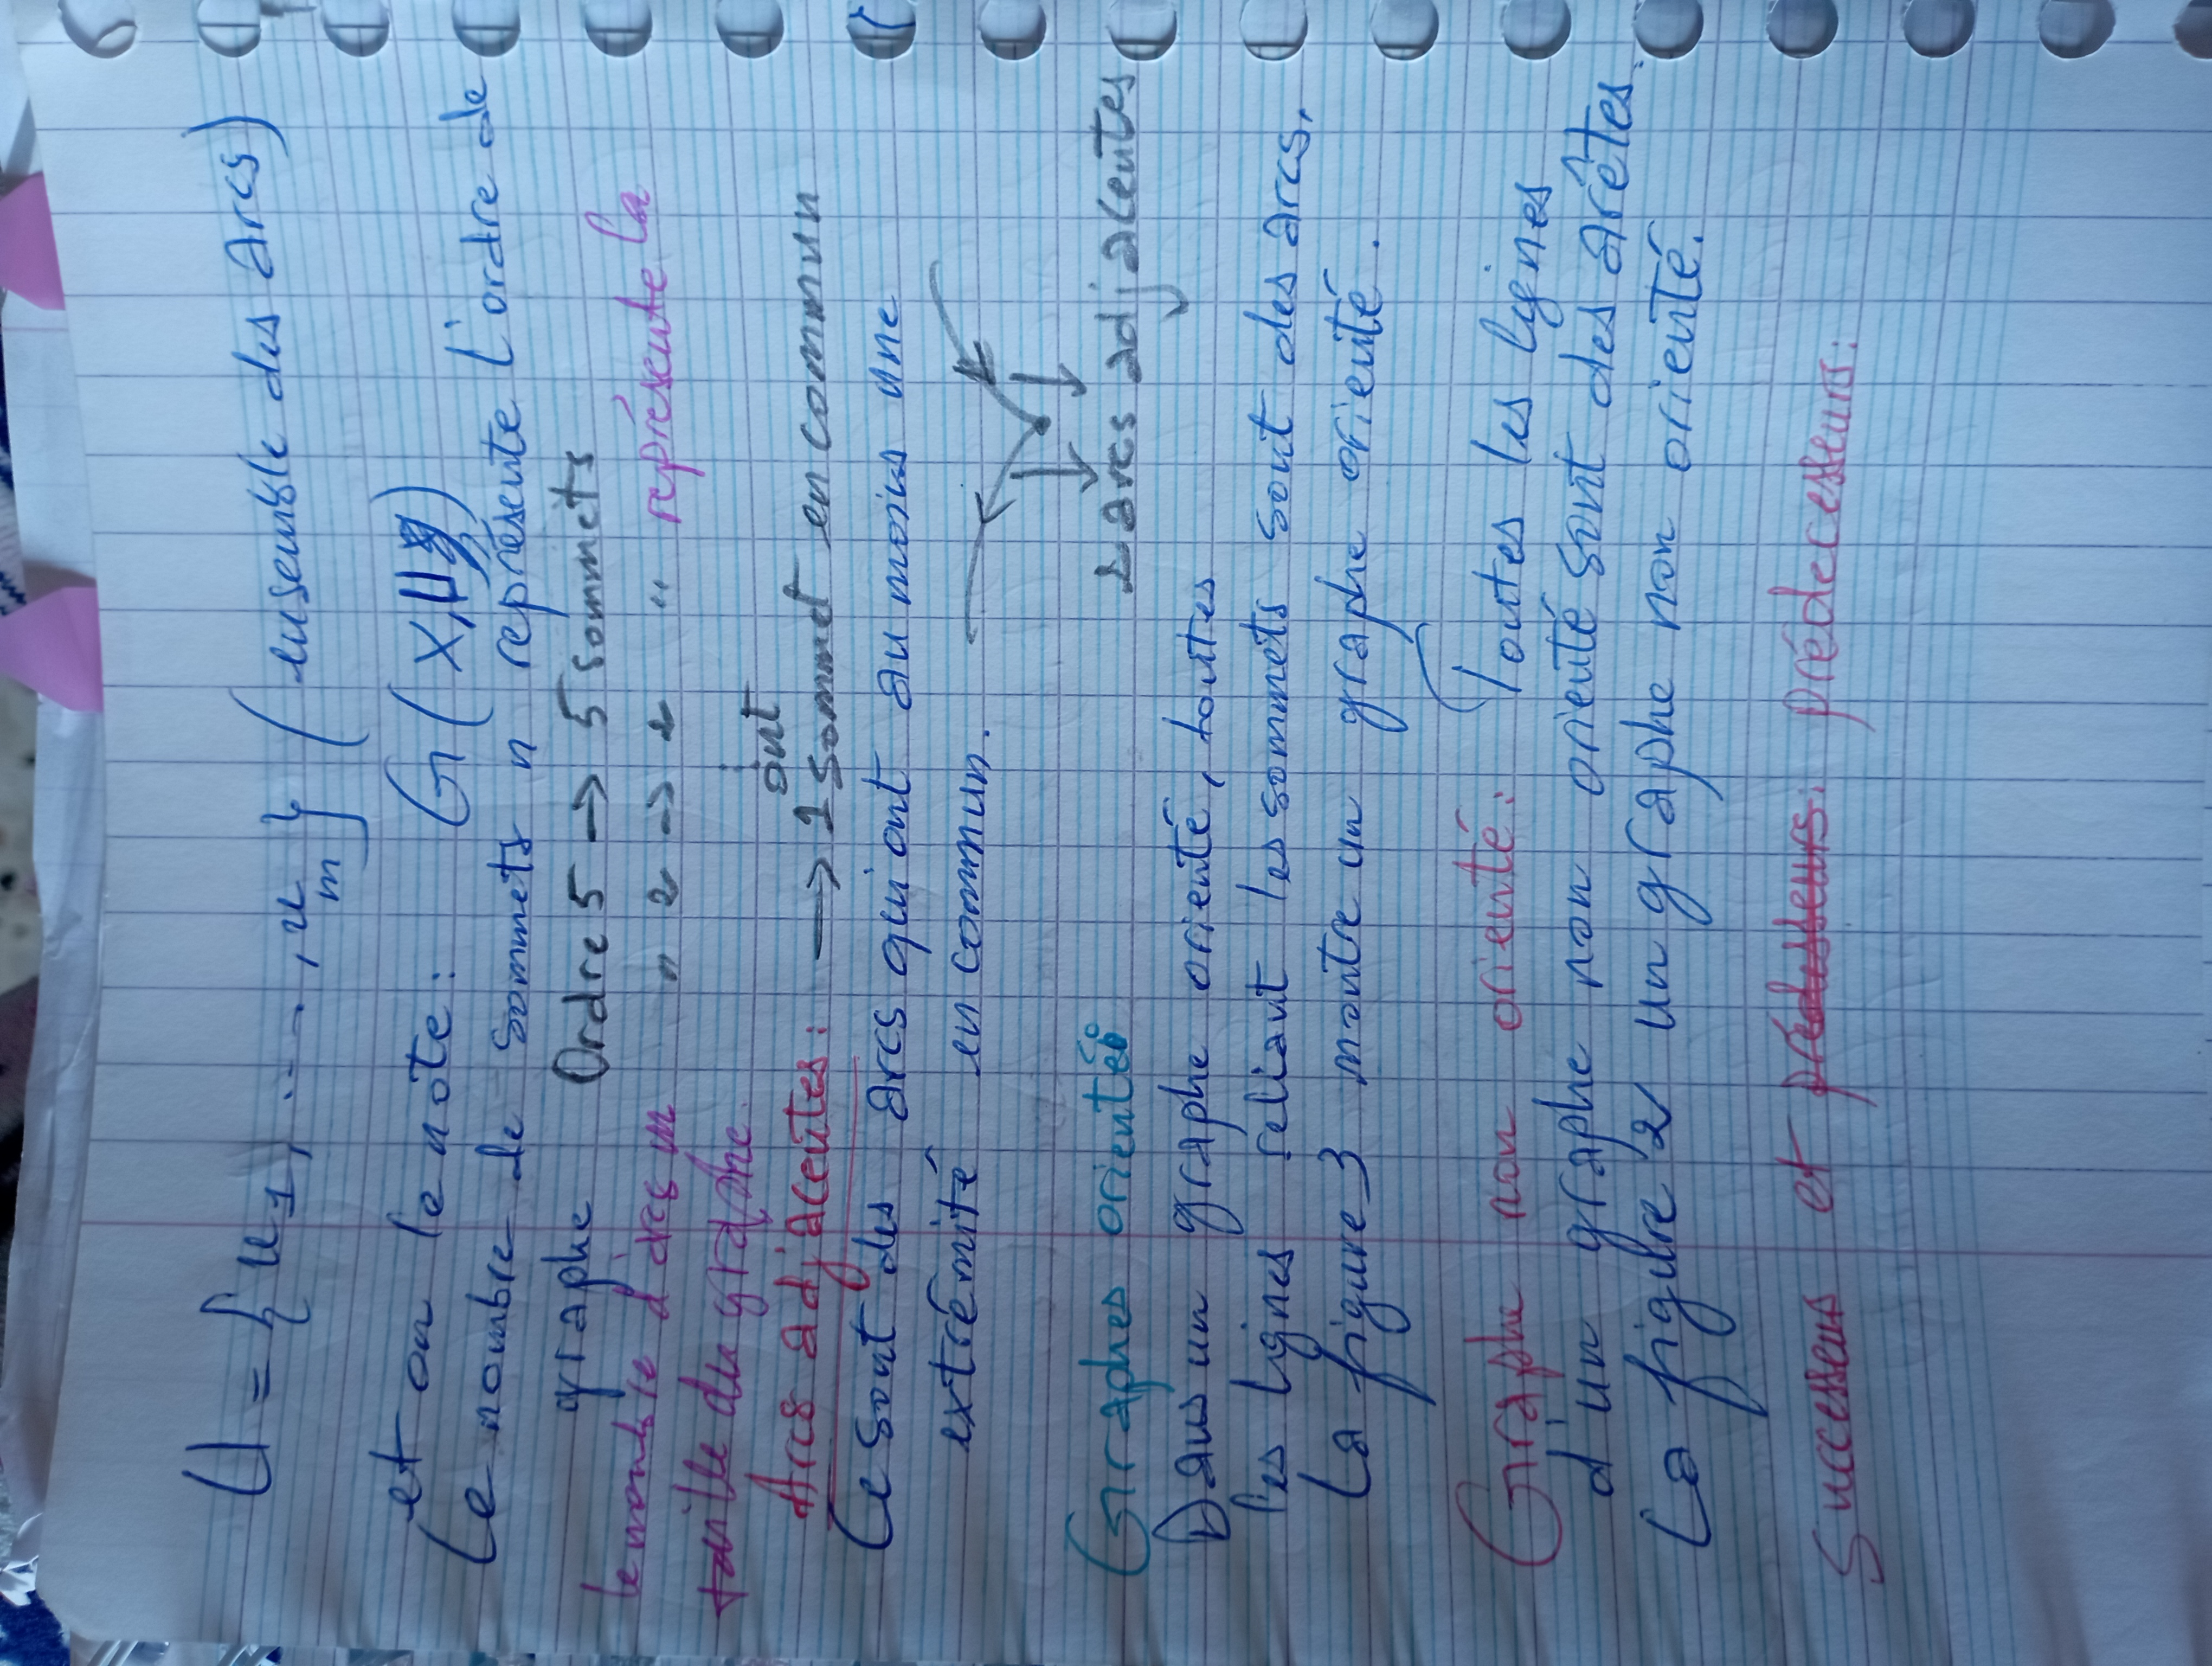 U = { u1, ...., um } (ensemble des arcs)
et on le note : G(X,U)
Le nombre de sommets n représente l'ordre de
graphe Ordre 5 → 5 sommets
" 2 → 2 "
Le nombre d'arcs m représente la
taille du graphe.
ont
Arcs adjacentes : → 1 sommet en commun
Ce sont des arcs qui ont au moins une
extrémité en commun.
Graphes orientés
2 arcs adjacentes
Dans un graphe orienté, toutes
les lignes reliant les sommets sont des arcs,
La figure 3 montre un graphe orienté.
Graphe non orienté : Toutes les lignes
d'un graphe non orienté sont des arêtes.
La figure 2 un graphe non orienté.
Successeus et prédecesseurs :